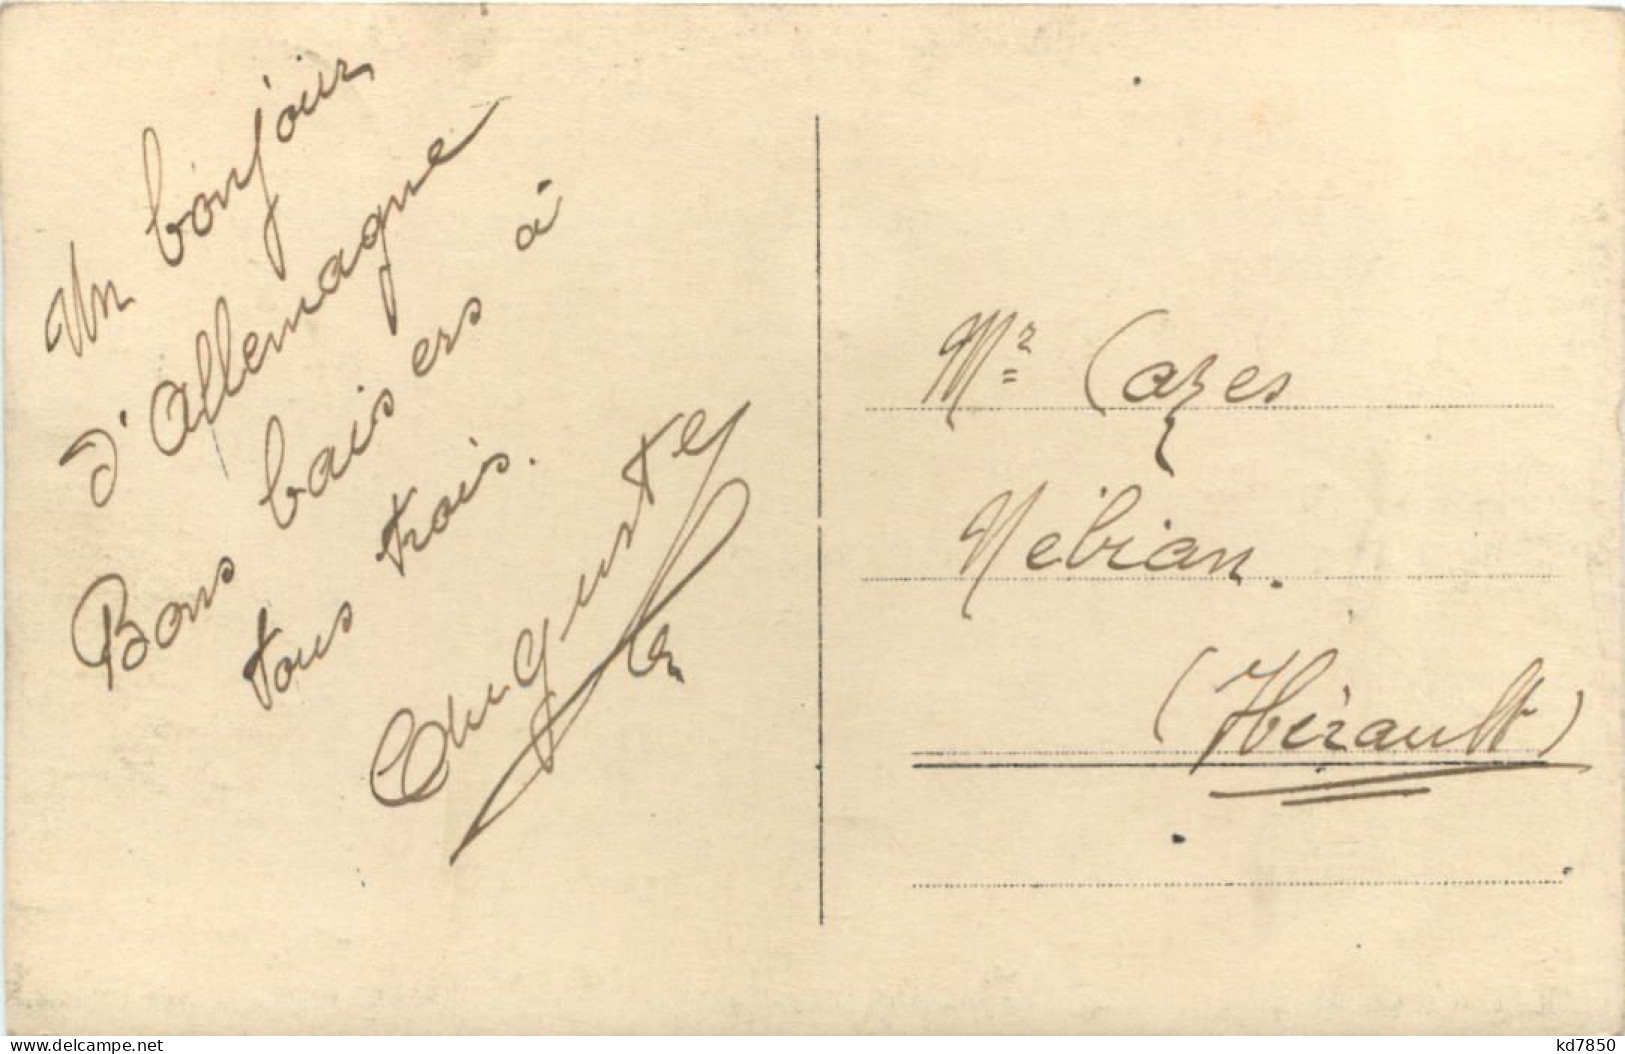 Un bonjour
d'Allemagne
Bons baisers à
tous trois.
Auguste
Mr Cazes
Nébian.
(Hérault)
www.delcampe.net
kd7850